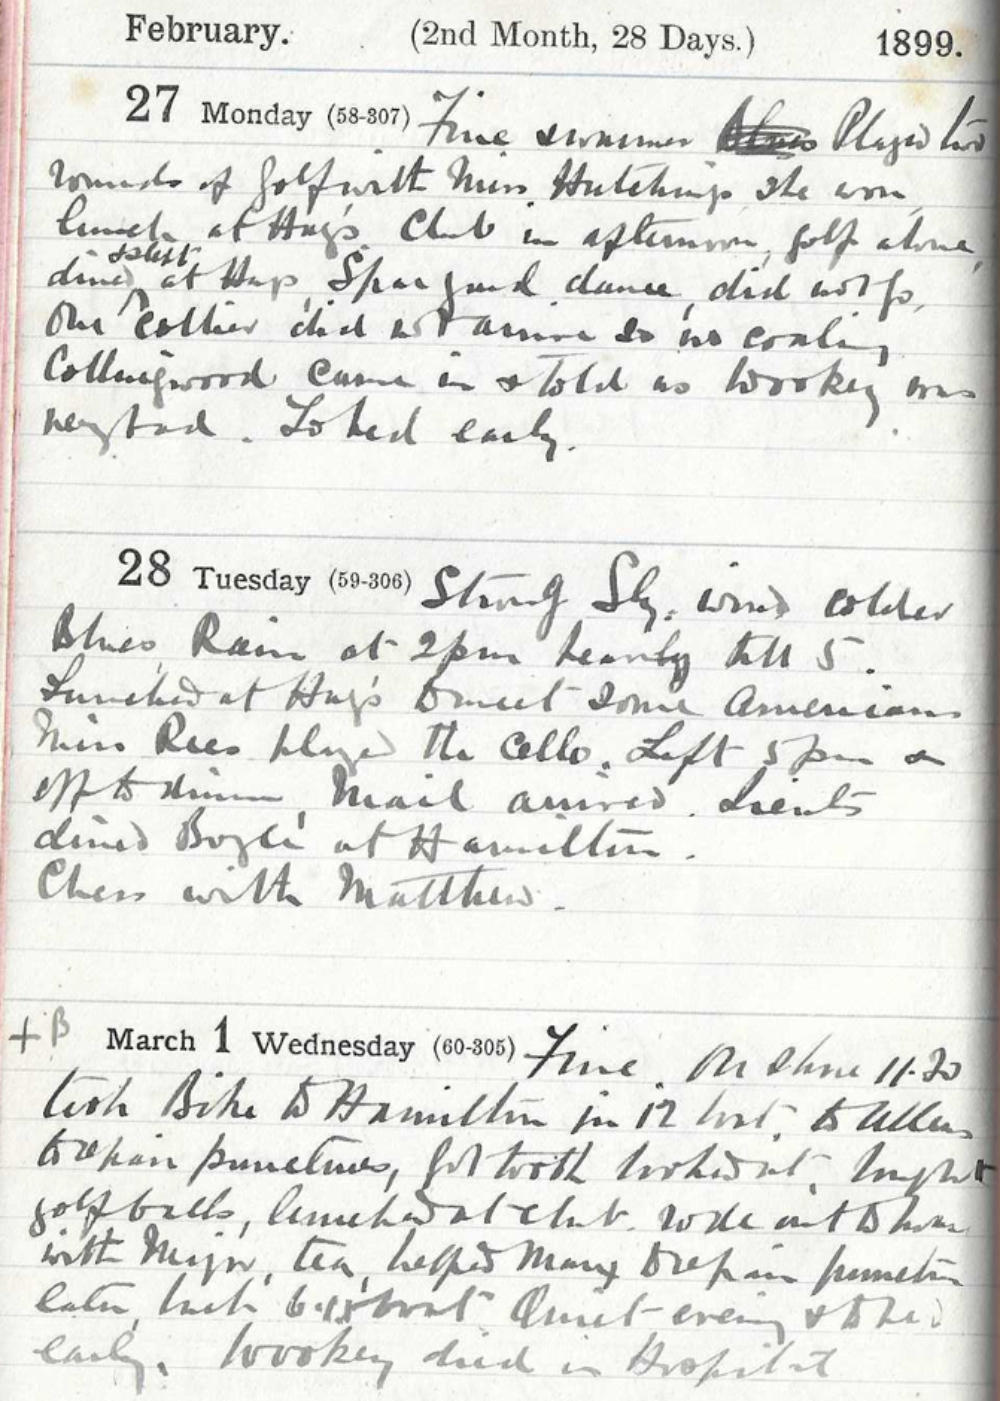 February. (2nd Month, 28 Days.) 1899.
27 Monday (58-307) Fine & warmer Blues Played two
rounds of golf with Miss Hutchings she won,
lunch at Hays Club in afternoon, golf alone,
& slept
dined at Hays, dance, did not go,
Our collier did not arrive so no coaling
Collingwood came in & told us Wookey was
very bad. To bed early.
28 Tuesday (59-306) Strong Sly. wind colder
Blues, Rain at 2pm heavily till 5.
Lunched at Hays to meet some Americans
Miss Rees played the cello. Left 5 pm &
off to dinner, Mail arrived.
dined at Hamilton.
Chess with Matthew.
+ B March 1 Wednesday (60-305) Fine. On shore 11.30
took Bike to Hamilton in 12 boat, to Allens
to repair punctures, got tooth looked at, bought
golf balls, lunched at club. rode out to
with Major, tea, helped Mary to repair puncture
later, back 6.15 boat Quiet evening & to bed
early. Wookey died in Hospital